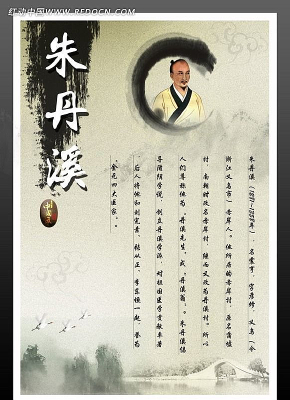 红动中国 WWW.REDOCN.COM
朱丹溪
朱丹溪（1281-1358年），名震亨，字彦修，义乌（今
浙江义乌市）赤岸人。他所居的赤岸村，原名蒲墟
村，南朝时改名赤岸村，继而又改为丹溪村，所以
人们尊称他为“丹溪先生”或“丹溪翁”。朱丹溪倡
导滋阴学说，创立丹溪学派，对祖国医学贡献卓著
，后人将他和刘完素、张从正、李东垣一起，誉为
金元四大医家。